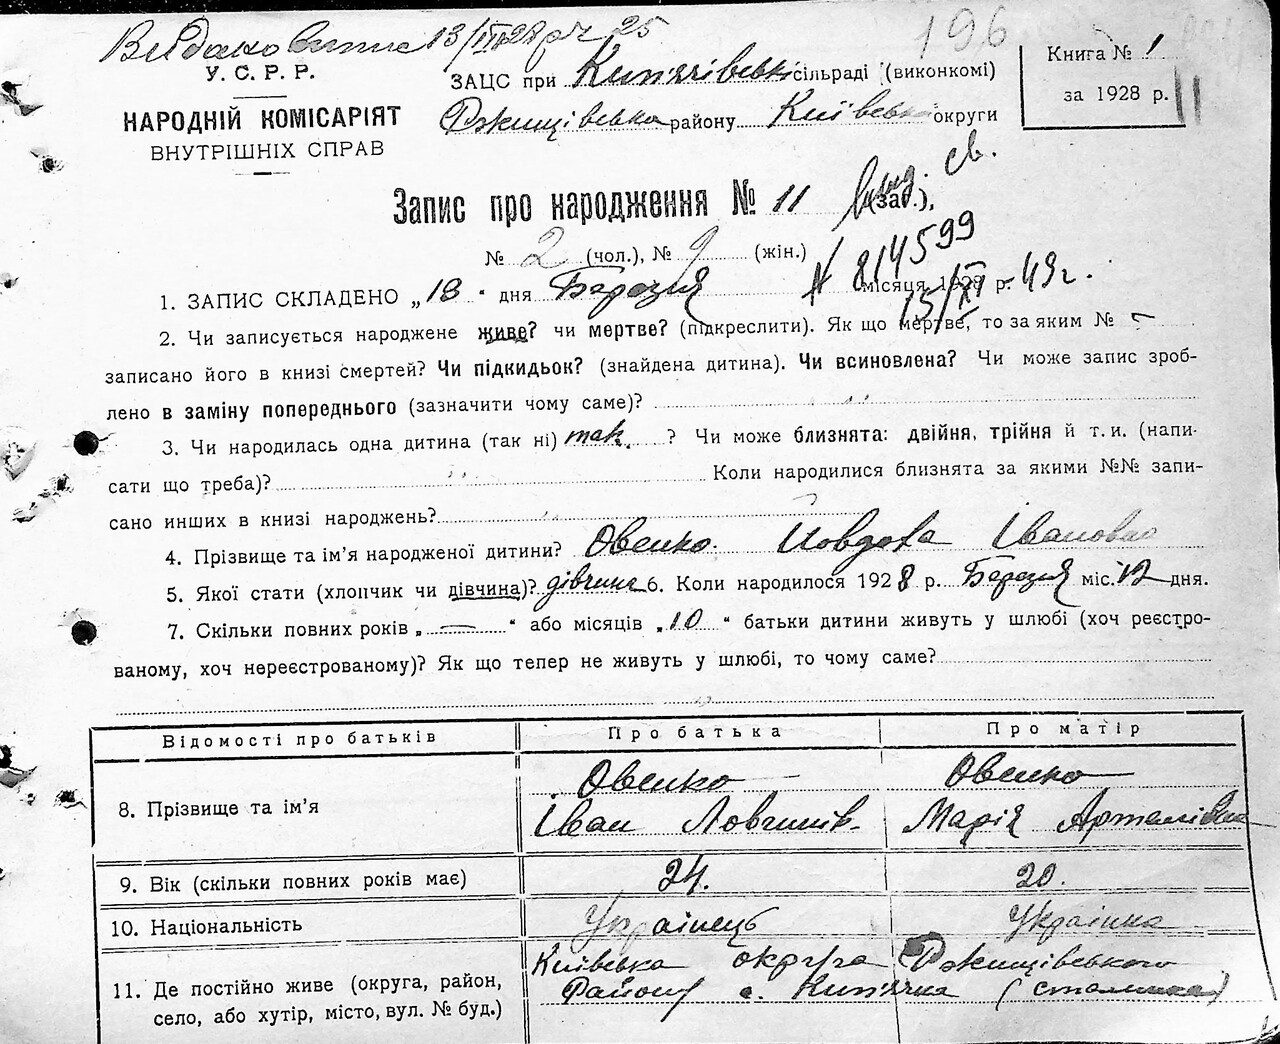 Видано витяг 13/III 28 р. № 25
196
У. С. Р. Р.
НАРОДНІЙ КОМІСАРІЯТ
ВНУТРІШНІХ СПРАВ
ЗАЦС при Кип'ячівській сільраді (виконкомі)
Ржищівська району Київська округи
Книга № 1
за 1928 р.
Запис про народження № 11 (зад.),
вид. св.
№ 2 (чол.), № 9 (жін.)
№ 814599
15/XI 49 г.
1. ЗАПИС СКЛАДЕНО „13" дня Березня місяця 1928 р.
2. Чи записується народжене живе? чи мертве? (підкреслити). Як що мертве, то за яким №
записано його в книзі смертей? Чи підкидьок? (знайдена дитина). Чи всиновлена? Чи може запис зроб-
лено в заміну попереднього (зазначити чому саме)?
3. Чи народилась одна дитина (так ні) так ? Чи може близнята: двійня, трійня й т. и. (напи-
сати що треба)? Коли народилися близнята за якими №№ запи-
сано инших в книзі народжень?
4. Прізвище та ім'я народженої дитини? Овенко Івановна
5. Якої стати (хлопчик чи дівчина)? дівчина 6. Коли народилося 1928 р. Березня міс. 12 дня.
7. Скільки повних років „—" або місяців „10" батьки дитини живуть у шлюбі (хоч реєстро-
ваному, хоч нереєстрованому)? Як що тепер не живуть у шлюбі, то чому саме?
Відомості про батьків Про батька Про матір
8. Прізвище та ім'я
Овенко Овенко
Іван Марія
9. Вік (скільки повних років має) 24. 20.
10. Національність Українець Українка
11. Де постійно живе (округа, район,
село, або хутір, місто, вул. № буд.)
Київська округа Ржищівського
Району с. Кип'ячка